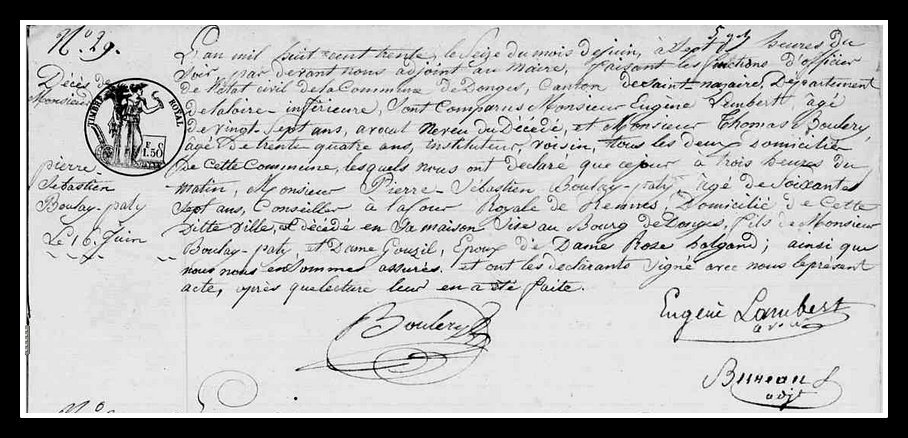 N.o 29.
Décès de
Monsieur
pierre-
Sébastien
Boulay-paty
Le 16 Juin
TIMBRE ROYAL
F. C.
1.50
L'an mil huit cent trente, le Seize du mois de juin, à Sept heures du
Soir par devant nous adjoint au Maire, faisant les fonctions d'officier
de l'état civil de la Commune de Donges, Canton de Saint-nazaire, Département
de la loire-inférieure, Sont Comparus Monsieur Eugène Lambert, agé
de vingt-Sept ans, avocat Neveu du Décédé, et Monsieur Thomas Boulery,
agé de trente quatre ans, instituteur, voisin, tous les deux domiciliés
de cette Commune, lesquels nous ont déclaré que ce jour à trois heures du
matin, Monsieur Pierre-Sébastien Boulay-paty, agé de Soixante
Sept ans, Conseiller à la Cour Royale de Rennes, Domicilié de Cette
Ditte Ville, est décédé en Sa maison Sise au Bourg de Donges, fils de Monsieur
Boulay-paty et Dame Gouzil, Epoux de Dame Rose halgand; ainsi que
nous nous en Sommes assurés. et ont les déclarants Signé avec nous le présent
acte, après que lecture leur en a été faite.
Boulery
Eugène Lambert
avocat
Bureau
adjt
N.o